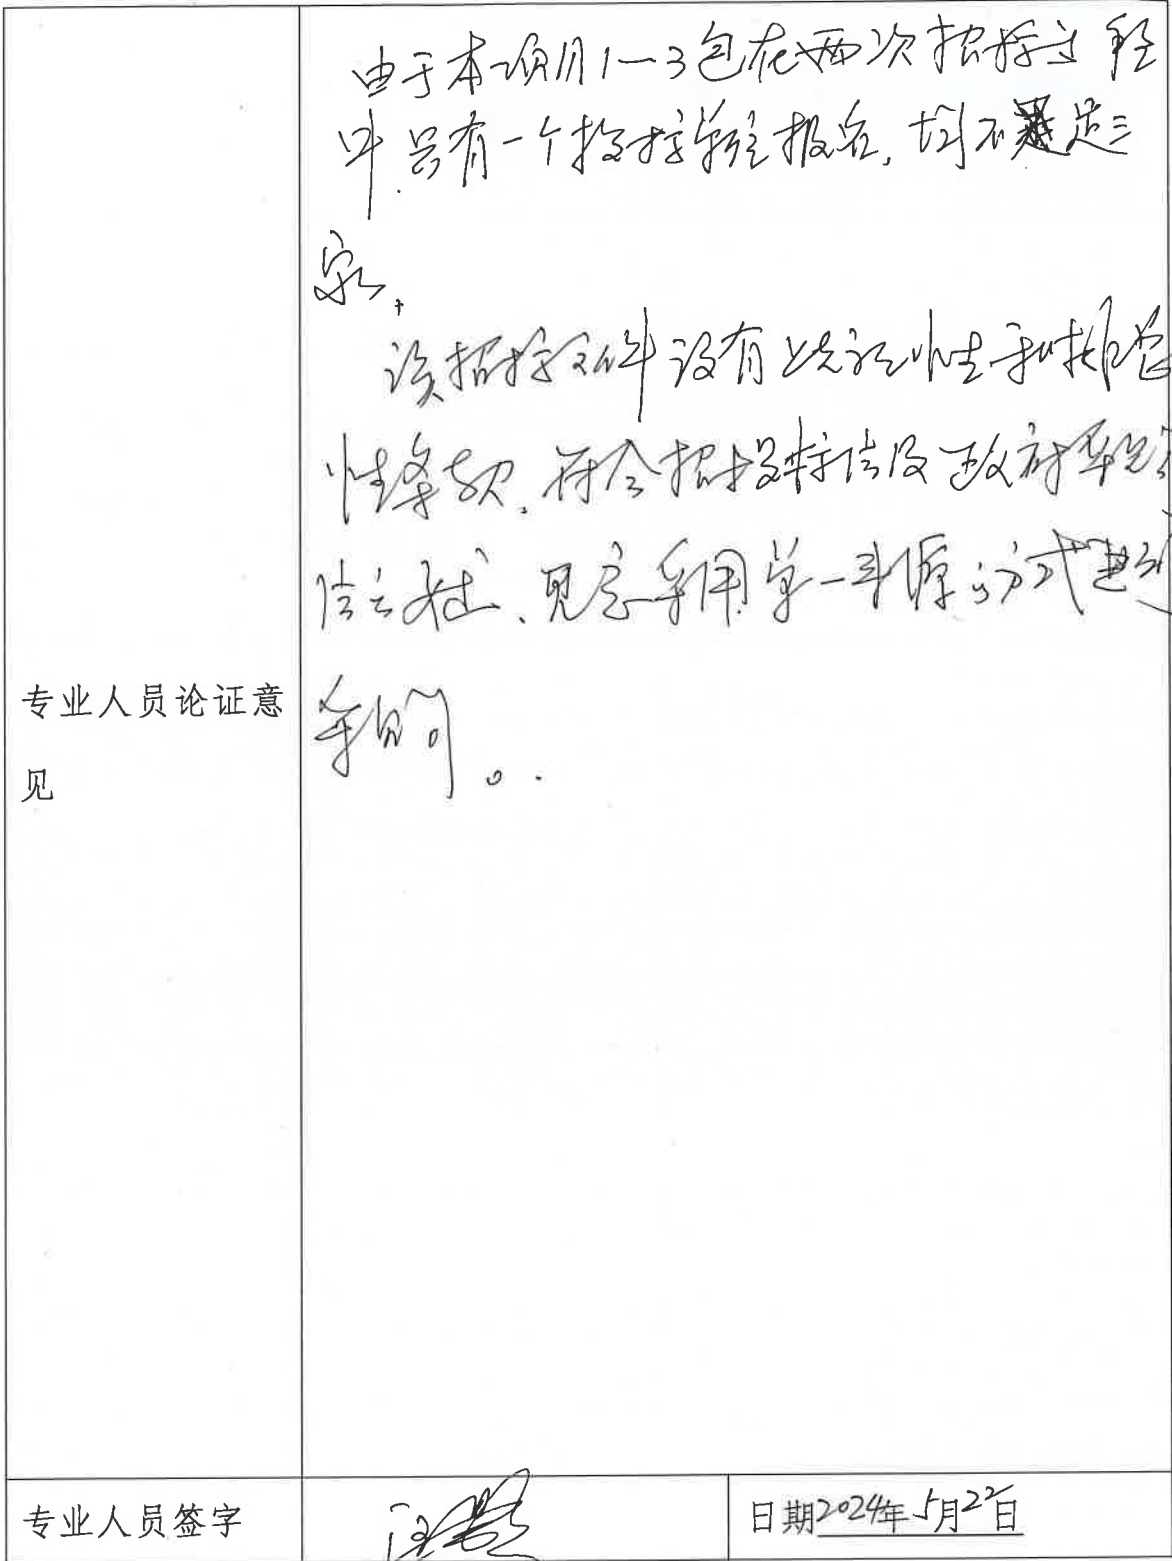 由于本项目1—3包在两次招标过程
中,只有一个投标单位报名,均不足三
家,
该招标文件没有歧视性和排它
性条款,符合招投标法及政府采购
法之规定、同意采用单一来源的方式进行
采购。
专业人员论证意
见
专业人员签字
日期2024年5月22日